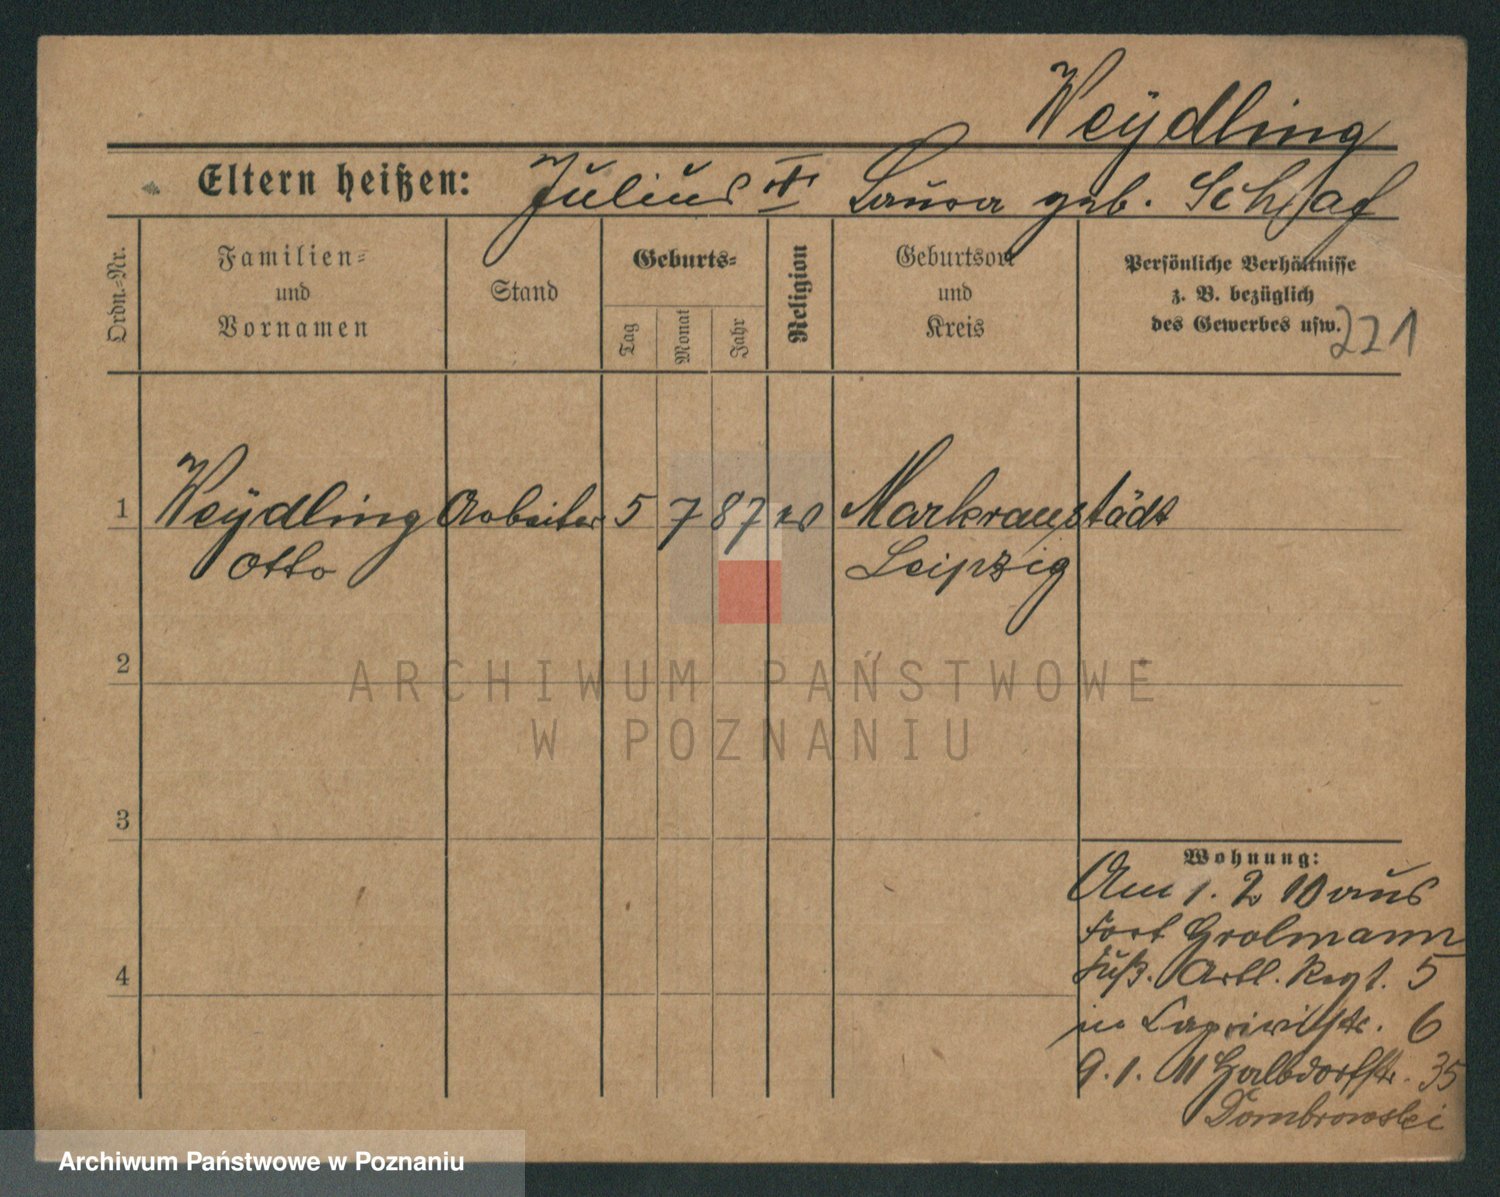 Weÿdling
Eltern heißen: Julius u Laura geb. Schlaf
Ordn.-Nr.
Familien-
und
Vornamen
Stand
Geburts-
Tag
Monat
Jahr
Religion
Geburtsort
und
Kreis
Persönliche Verhältnisse
z. B. bezüglich
des Gewerbes usw.
221
1 Weÿdling Arbeiter 5 7 87 ev Markranstädt
Otto Leipzig
2
ARCHIWUM PAŃSTWOWE
W POZNANIU
3
Wohnung:
Am 1. 2 10 aus
Fort Grolmann
Fuß. Artl. Regt. 5
in Caprivistr. 6
9. 1. 11 Halbdorfstr. 35
Dombrowski
4
Archiwum Państwowe w Poznaniu